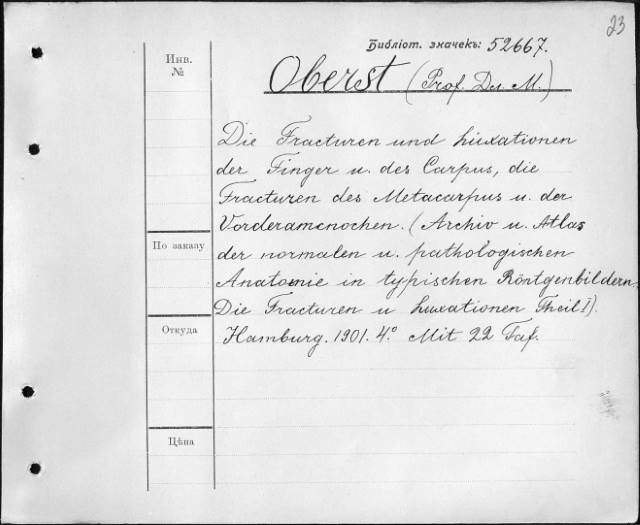 23
Библіот. значекъ: 52667.
Инв.
№
Oberst (Prof. Dr. M.)
Die Fracturen und Luxationen
der Finger u. des Carpus, die
Fracturen des Metacarpus u. der
Vorderamenochen. (Archiv u. Atlas
По заказу
der normalen u. pathologischen
Anatomie in typischen Röntgenbildern.
Die Fracturen u Luxationen Theil I).
Откуда
Hamburg. 1901. 4.° Mit 22 Taf.
Цѣна